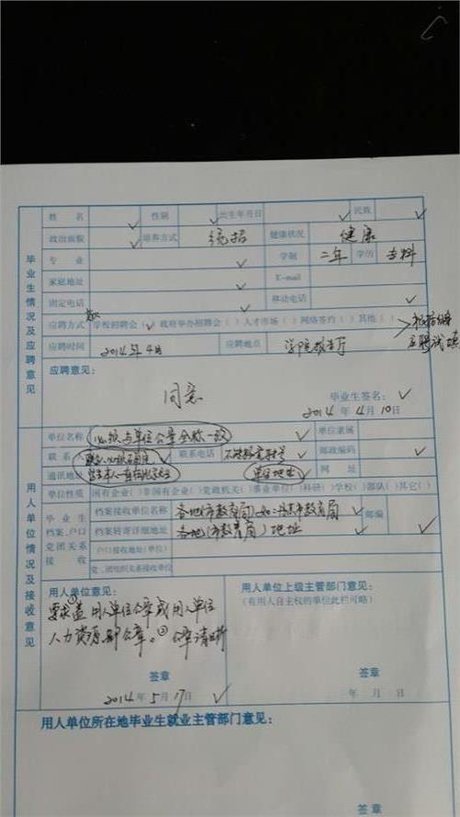 毕业生情况及应聘意见
姓 名 性别 出生年月日 民族
政治面貌 培养方式 统招 健康状况 健康
专 业 学制 二年 学历 专科
家庭地址 E-mail
固定电话 移动电话
应聘方式 学校招聘会( ) 政府举办招聘会( ) 人才市场( ) 网络签约( ) 其他( )
应聘时间 2014年4月 应聘地点 学院报告厅
应聘意见:
同意
毕业生签名:
2014年4月10日
用人单位情况及接收意见
单位名称 必须与单位公章全称一致 单位隶属
联系 联系电话 邮政编码
通讯地址 单位地址 网 址
单位性质 国有企业( ) 非国有企业( ) 党政机关( ) 事业单位( ) 科研( ) 学校( ) 部队( ) 其它( )
毕 业 生 档案、户口 党团关系 接 收
档案接收单位名称 各地(市教育局) 邮编
档案转寄详细地址 各地(市教育局)地址
户口接收地址(单位)
党、团组织关系接收单位
用人单位意见:
要求①盖用人单位公章或用人单位
人力资源部公章。②公章清晰
签章
2014年5月17日
用人单位上级主管部门意见:
(有用人自主权的单位此栏可略)
签章
年 月 日
用人单位所在地毕业生就业主管部门意见:
签章